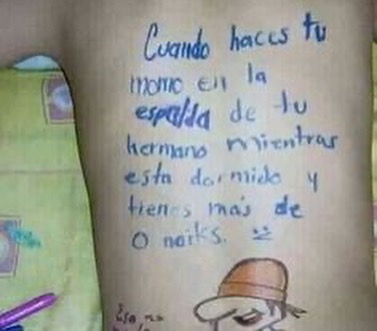 Cuando haces tu
momo en la
espalda de tu
hermano mientras
esta dormido y
tienes más de
0 naiks.